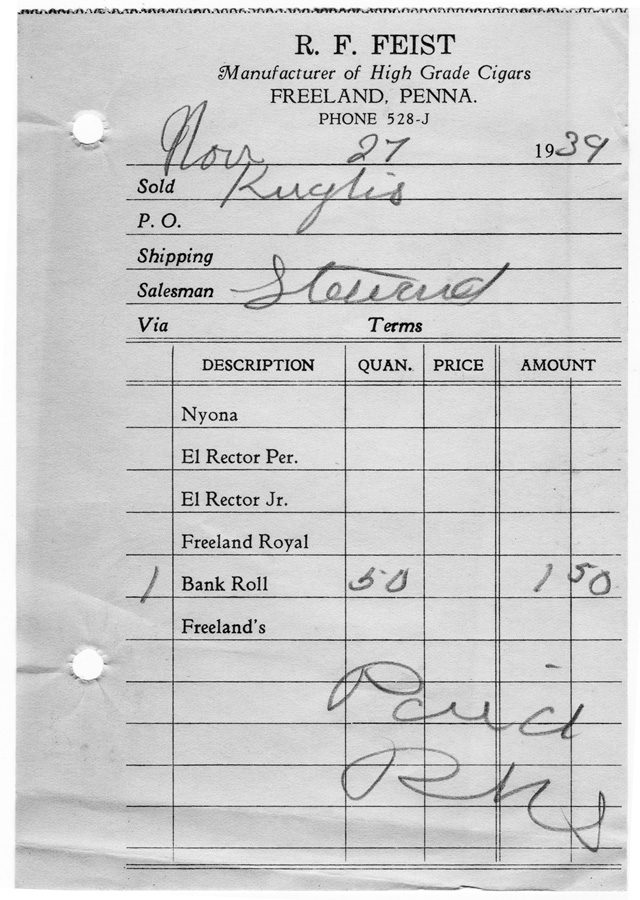 R. F. FEIST
Manufacturer of High Grade Cigars
FREELAND, PENNA.
PHONE 528-J
Nov 27 1939
Sold Kuglis
P. O.
Shipping
Salesman
Via Terms
DESCRIPTION QUAN. PRICE AMOUNT
Nyona
El Rector Per.
El Rector Jr.
Freeland Royal
1 Bank Roll 50 1 50
Freeland's
Paid